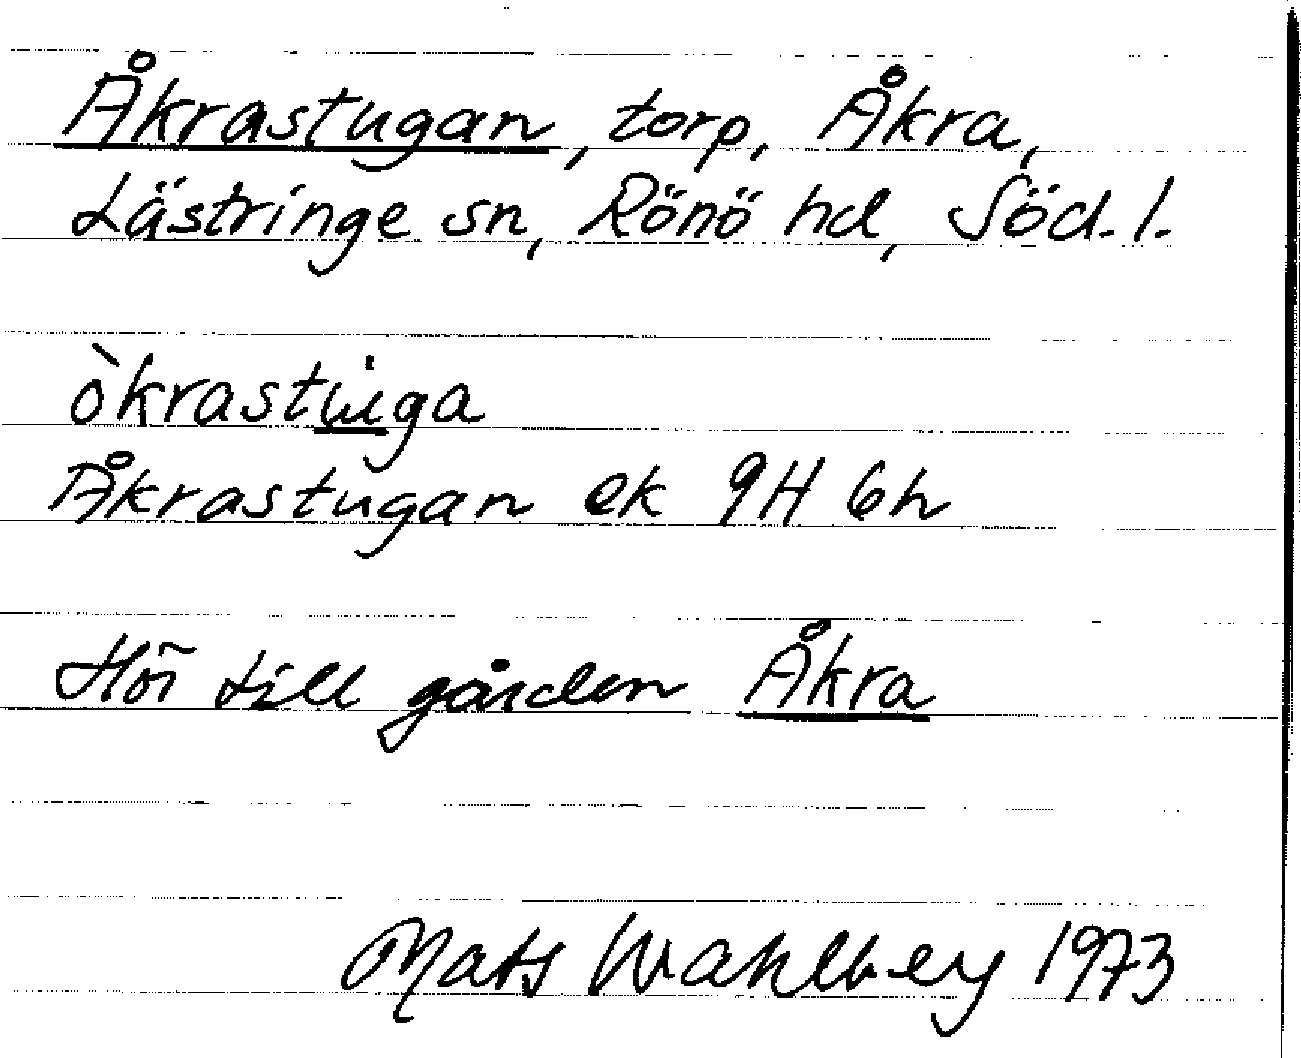 Åkrastugan, torp, Åkra,
Lästringe sn, Rönö hd, Söd. l.
òkrastùga
Åkrastugan ek 9H 6h
Hör till gården Åkra
Mats Wahlberg 1973